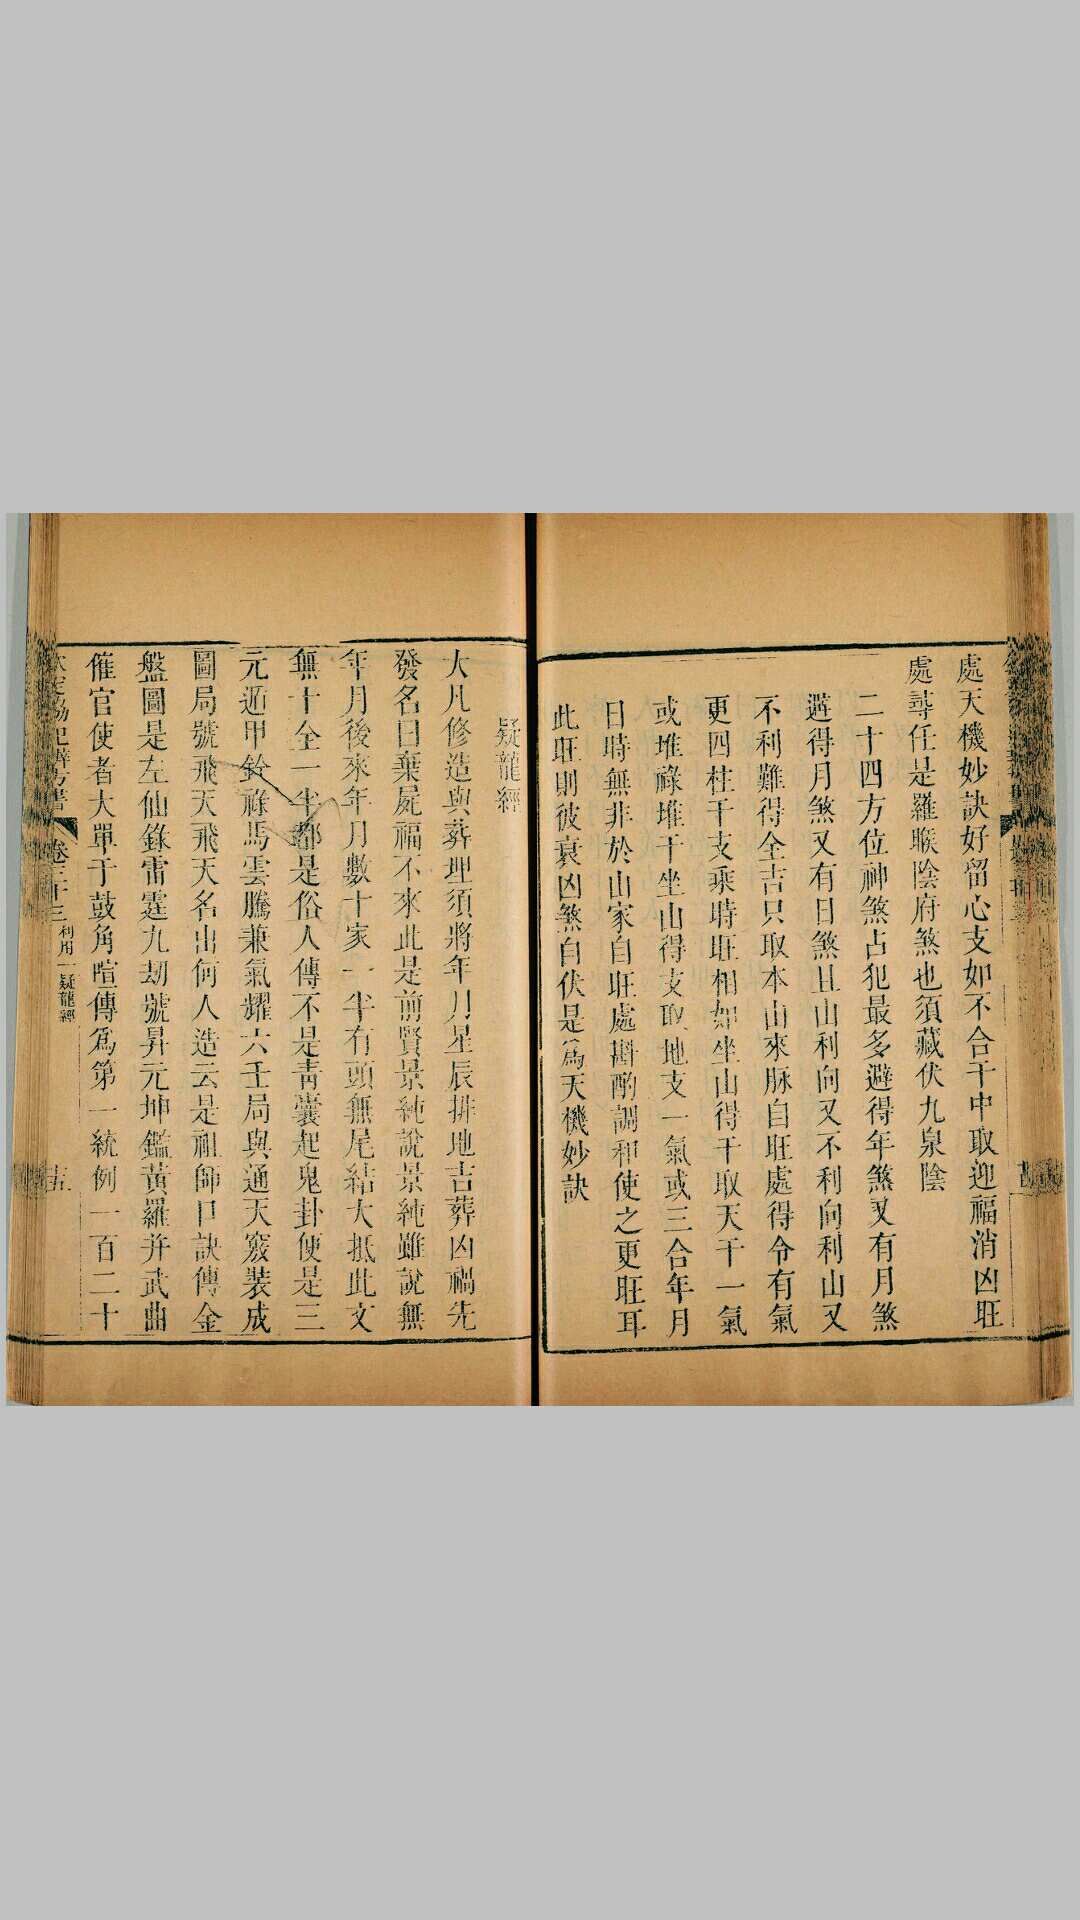 處天機妙訣好留心支如不合干中取迎福消凶旺
處尋任是羅睺陰府煞也須藏伏九泉陰
二十四方位神煞占犯最多避得年煞又有月煞
避得月煞又有日煞且山利向又不利向利山又
不利難得全吉只取本山來脉自旺處得令有氣
更四柱干支乘時旺相如坐山得干取天干一氣
或堆祿堆干坐山得支取地支一氣或三合年月
日時無非於山家自旺處斟酌調和使之更旺耳
此旺則彼衰凶煞自伏是爲天機妙訣
疑龍經
大凡修造與葬埋須將年月星辰排地吉葬凶禍先
發名曰棄屍福不來此是前賢景純說景純雖說無
年月後來年月數十家一半有頭無尾結大抵此文
無十全一半都是俗人傳不是靑囊起鬼卦便是三
元遁甲鈐祿馬雲騰兼氣耀六壬局與通天竅裝成
圖局號飛天飛天名出何人造云是祖師口訣傳金
盤圖是左仙錄雷霆九刼號昇元坤鑑黃羅并武曲
催官使者大單于鼓角喧傳爲第一統例一百二十
欽定協紀辨方書 卷三十三 利用一 疑龍經 十五